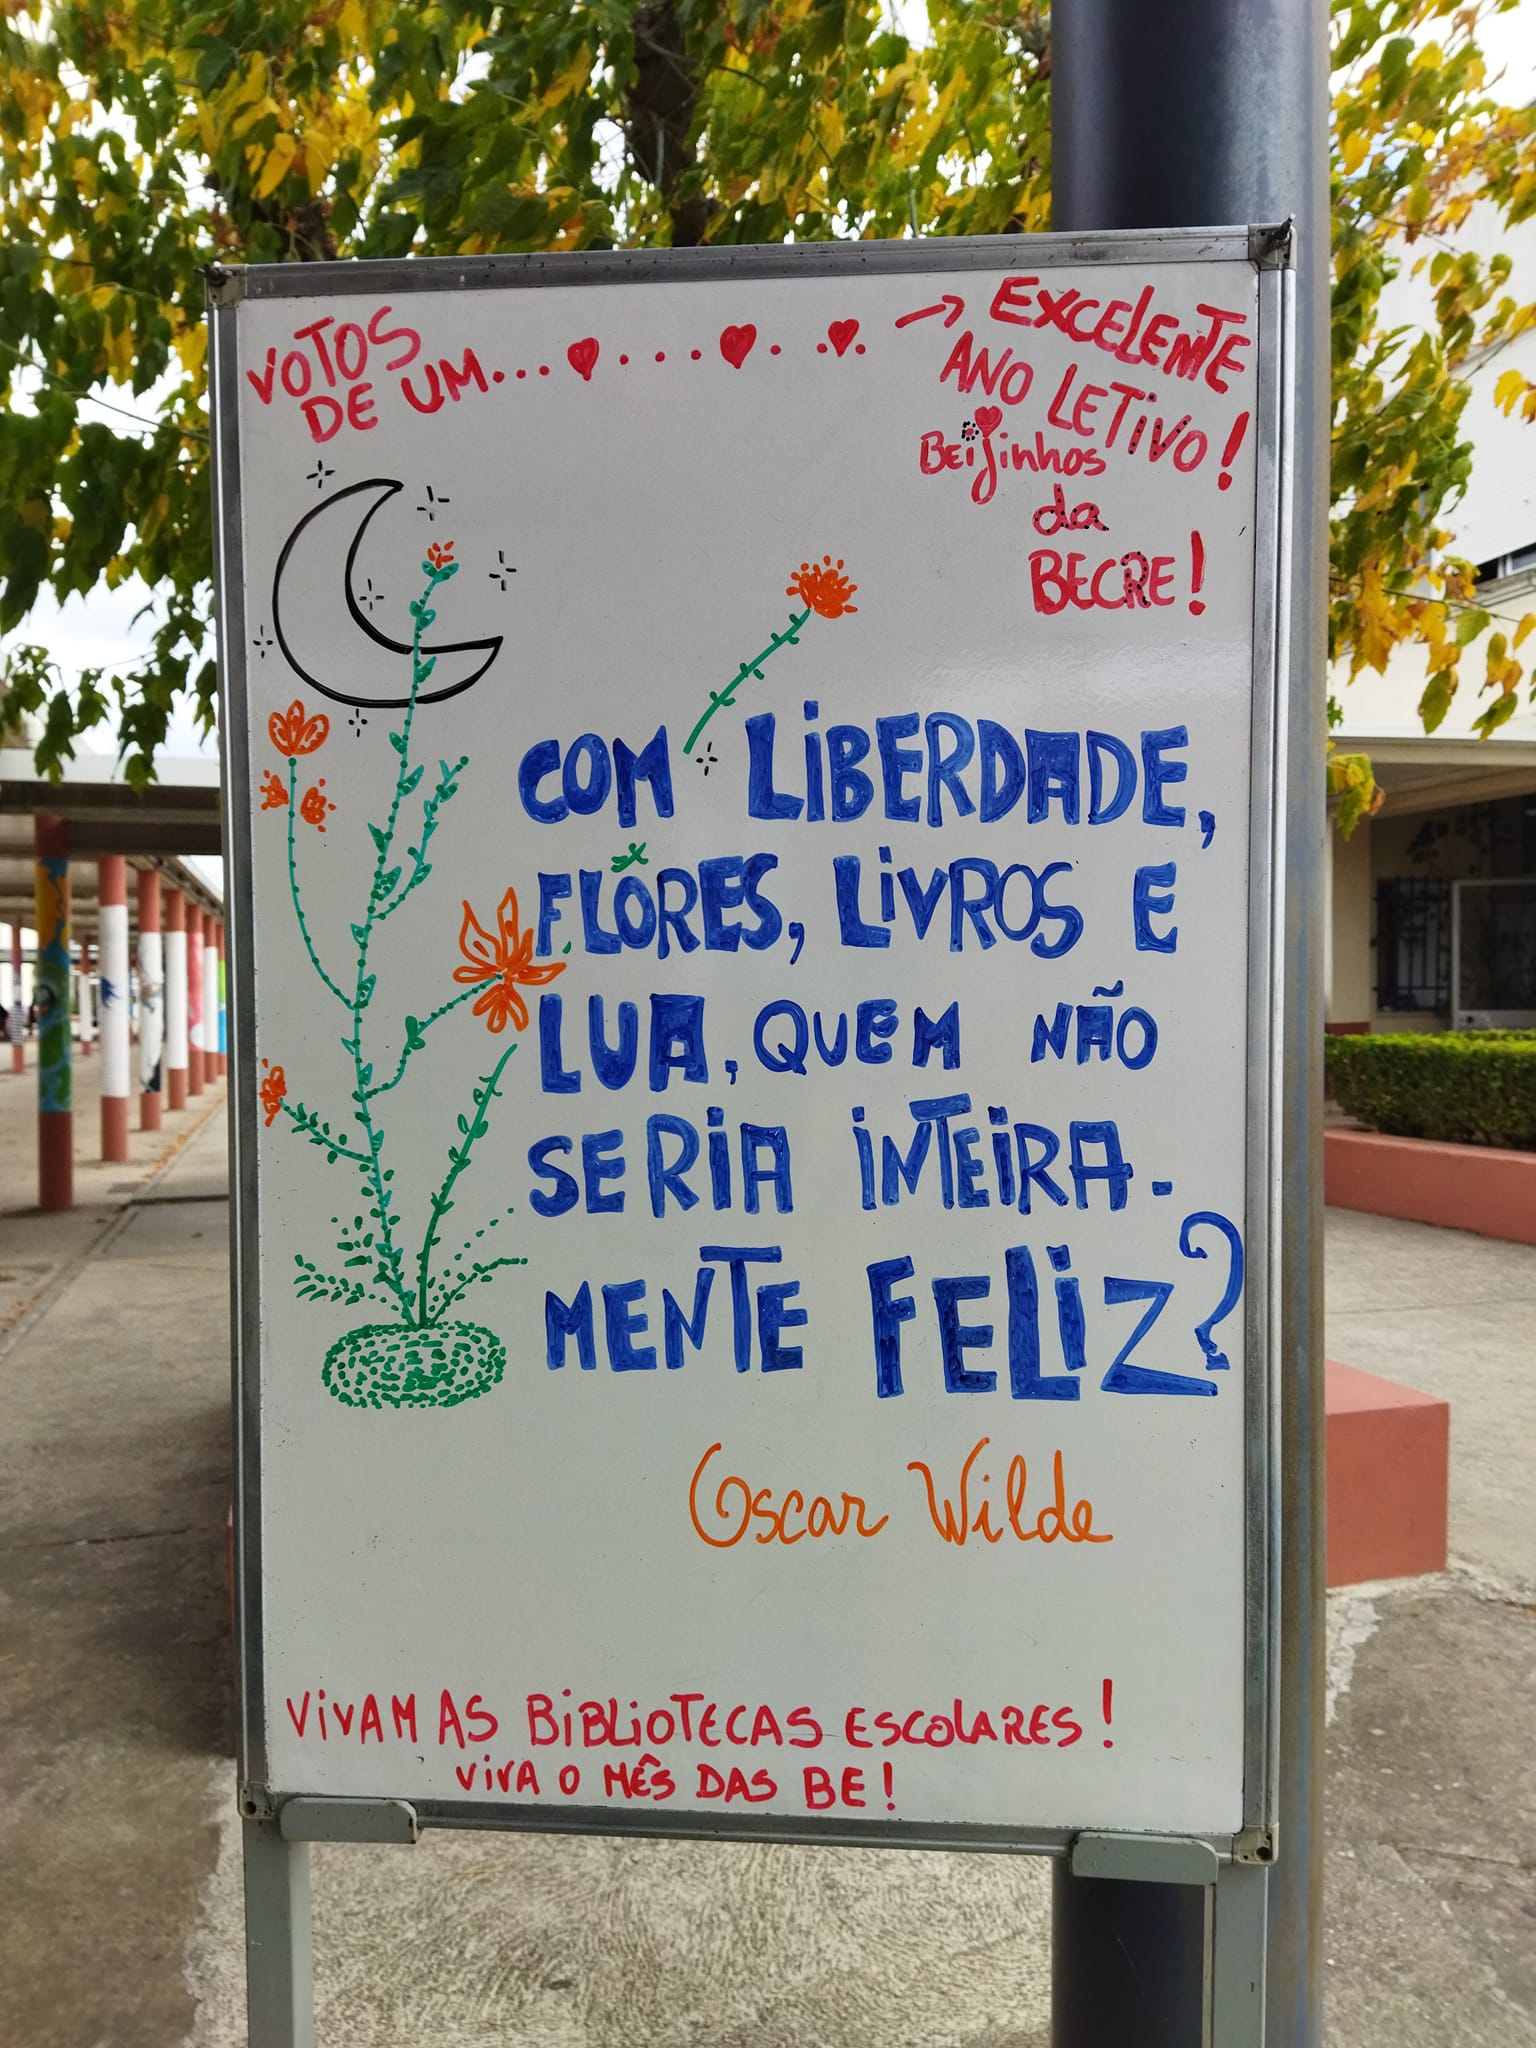 VOTOS
DE UM...
EXCELENTE
ANO LETIVO!
Beijinhos
da
BECRE!
COM LIBERDADE,
FLORES, LIVROS E
LUA, QUEM NÃO
SERIA INTEIRA-
MENTE FELIZ?
Oscar Wilde
VIVAM AS BIBLIOTECAS ESCOLARES!
VIVA O MÊS DAS BE!